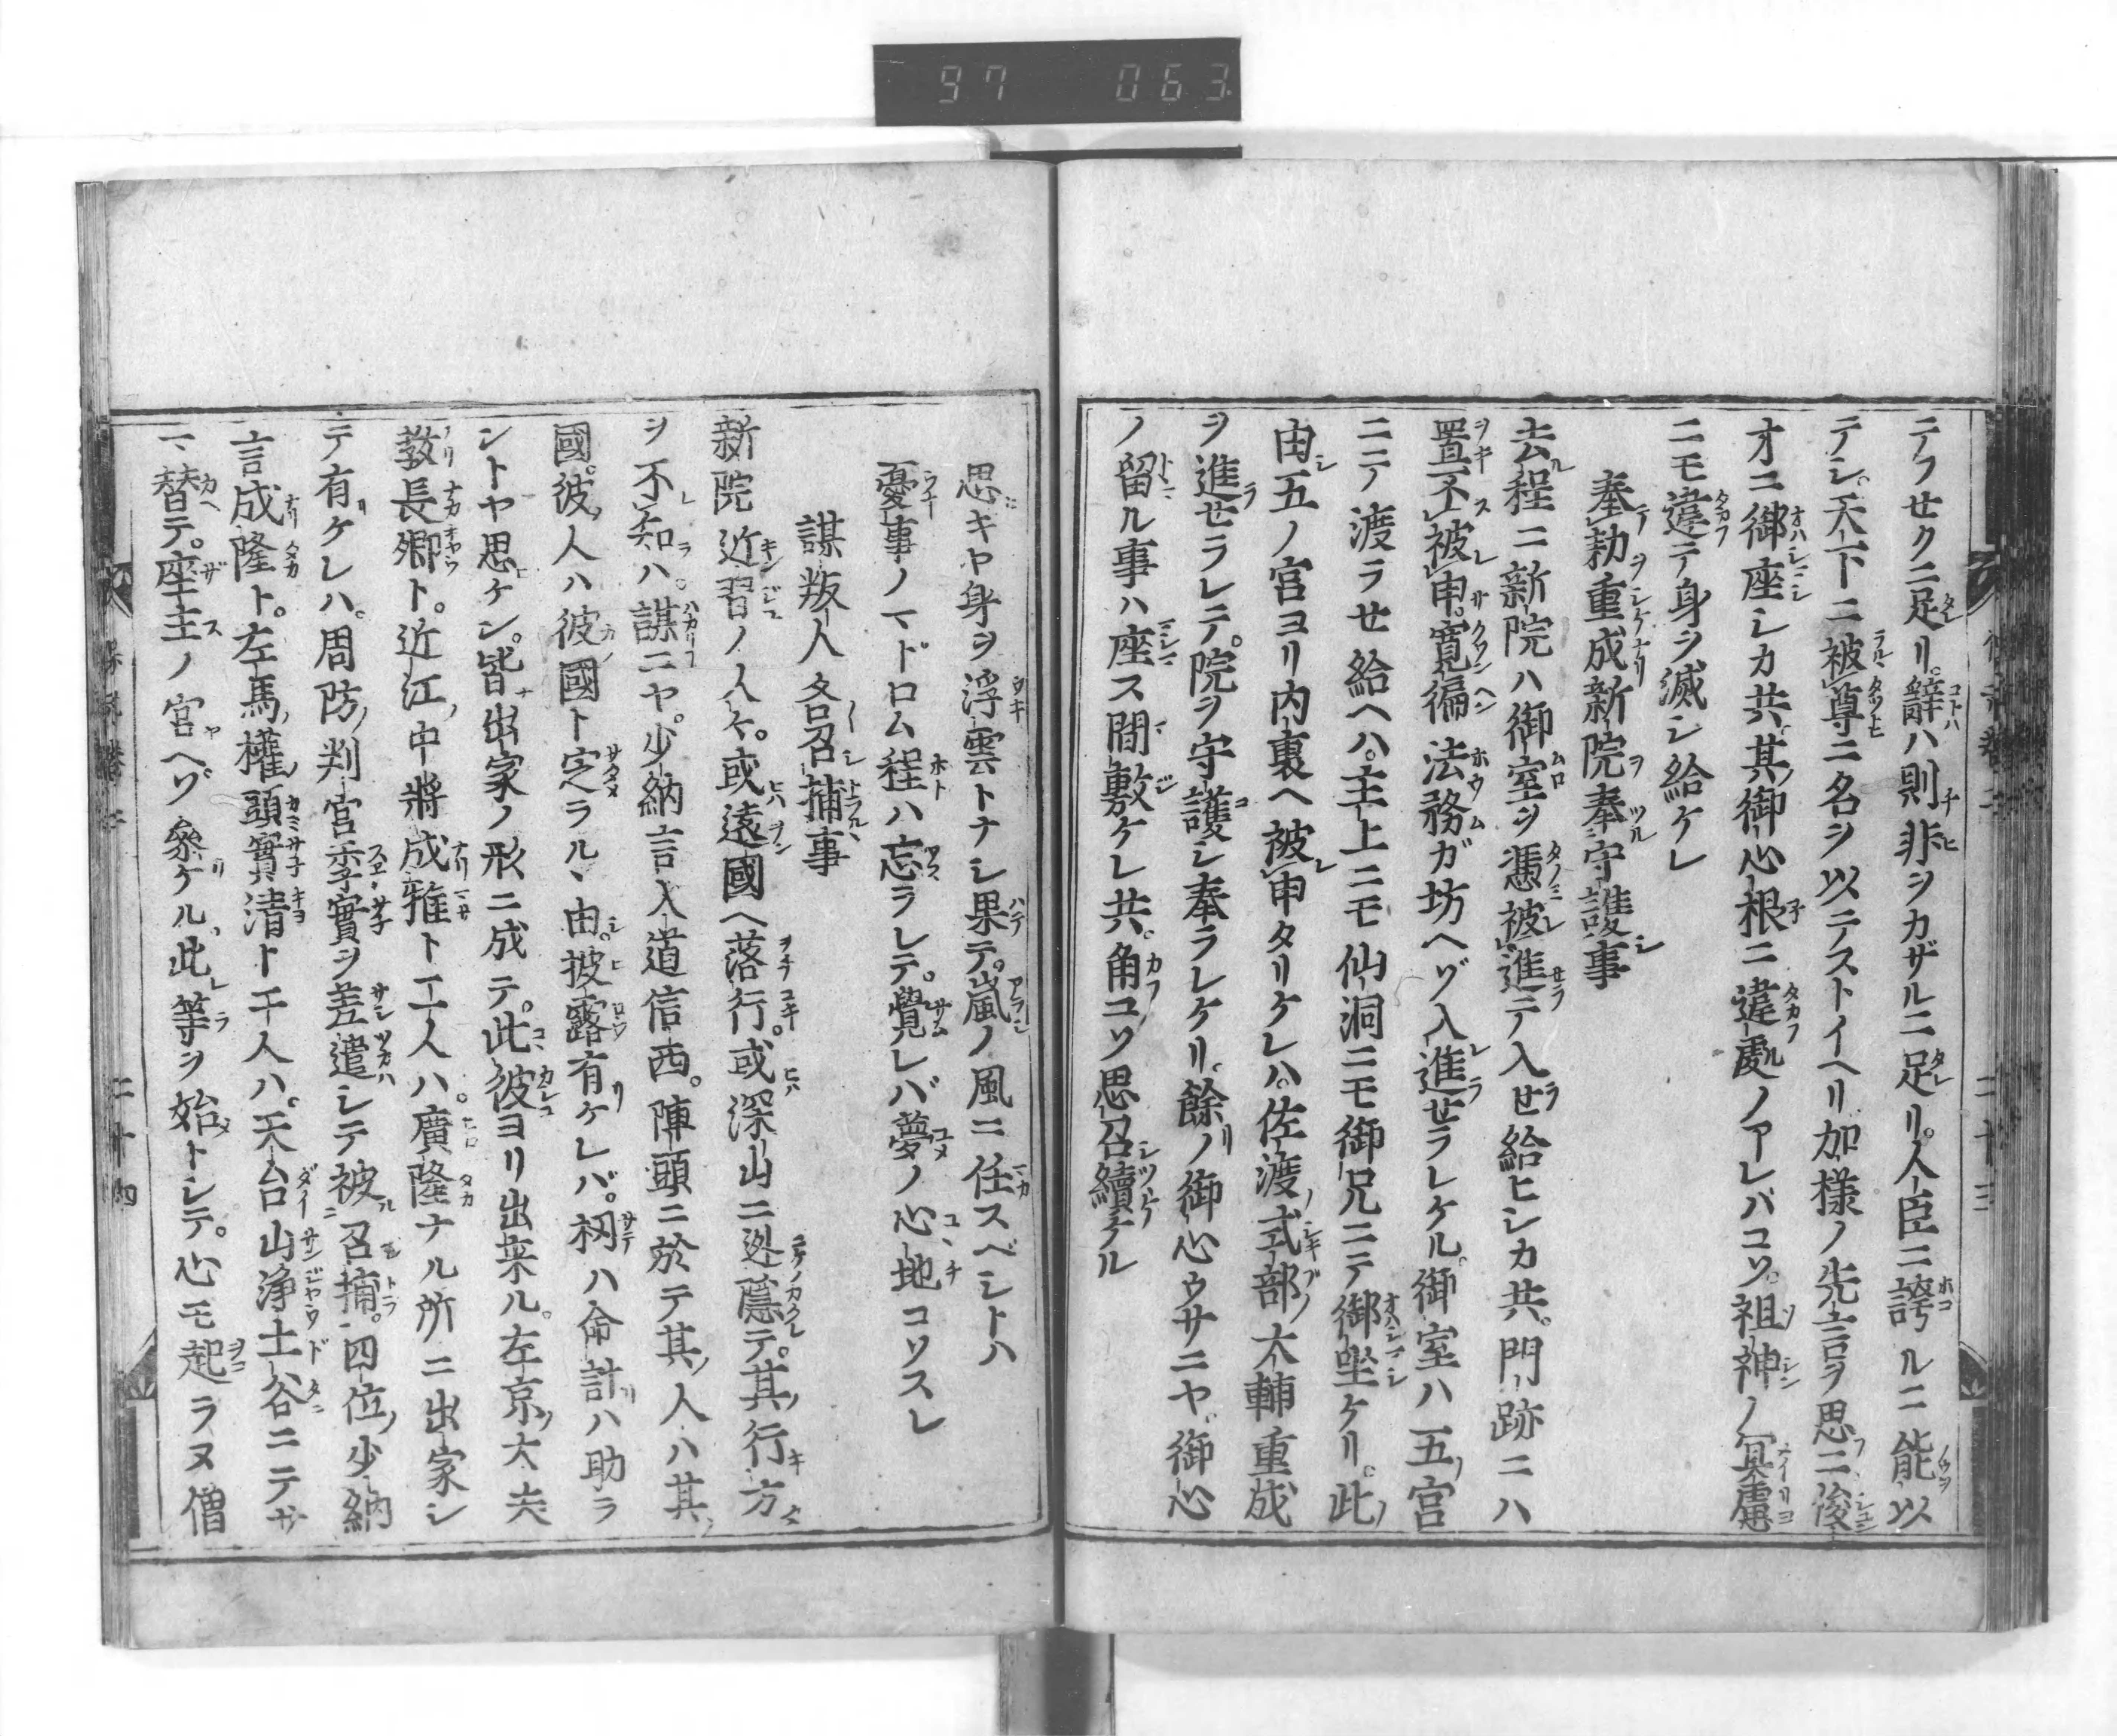 97 063
テフセクニ足リ。辭ハ則非ヲカザルニ足リ。人臣ニ誇ルニ能以
テシ。天下ニ被尊ニ名ヲ以テストイヘリ加様ノ先言ヲ思ニ俊
オニ御座シカ共。其御心根ニ違處ノアレバコソ。祖神ノ冥慮
ニモ違テ身ヲ滅シ給ケレ
奉勅重成新院奉守護事
去程ニ新院ハ御室ヲ憑被進テ入セ給ヒシカ共。門跡ニハ
置不被申。寛徧法務ガ坊ヘゾ入進セラレケル。御室ハ五宮
ニテ渡ラセ給ヘハ。主上ニモ仙洞ニモ御兄ニテ御坐ケリ。此
由五ノ宮ヨリ内裏ヘ被申タリケレハ。佐渡式部大輔重成
ヲ進セラレテ。院ヲ守護シ奉ラレケリ。餘ノ御心ウサニヤ御心
ノ留ル事ハ座ス間敷ケレ共。角コソ思召續ケル
思キヤ身ヲ浮雲トナシ果テ。嵐ノ風ニ任スベシトハ
憂事ノマドロム程ハ忘ラレテ。覺レバ夢ノ心地コソスレ
謀叛人各召捕事
新院近習ノ人々。或遠國ヘ落行。或深山ニ迯隱テ。其行方
ヲ不知ハ。謀ニヤ。少納言入道信西。陣頭ニ於テ其人ハ其
國。彼人ハ彼國ト定ラル、由。披露有ケレバ。扨ハ命計ハ助ラ
ントヤ思ケン。皆出家ノ形ニ成テ。此彼ヨリ出來ル。左京大夫
教長卿ト。近江中將成雅ト二人ハ。廣隆ナル所ニ出家シ
テ有ケレハ。周防判官季實ヲ差遣シテ被召捕。四位少納
言成隆ト。左馬權頭實清ト二人ハ。天台山浄土谷ニテサ
マ替テ。座主ノ宮ヘゾ參ケル。此等ヲ始トシテ。心モ起ラヌ僧
二十三
二十四